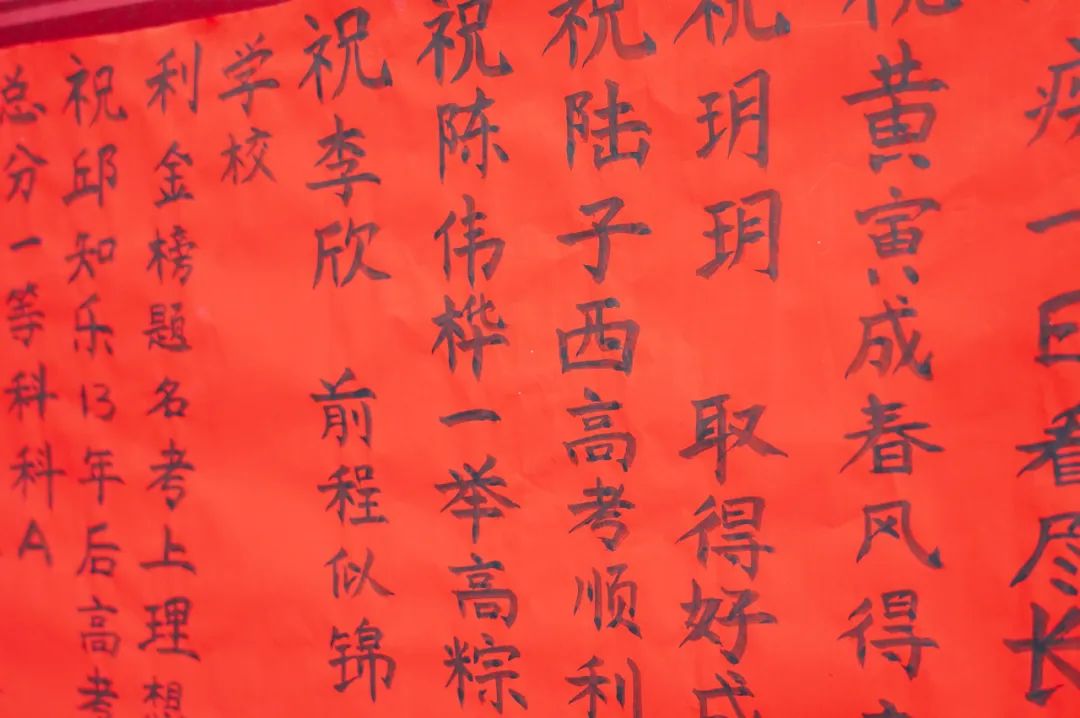 总分一等科科A
祝邱知乐13年后高考
利金榜题名考上理想
学校
祝李欣 前程似锦
祝陈伟桦一举高粽
祝陆子西高考顺利
祝玥玥 取得好成
祝黄寅成春风得
疾一日看尽长